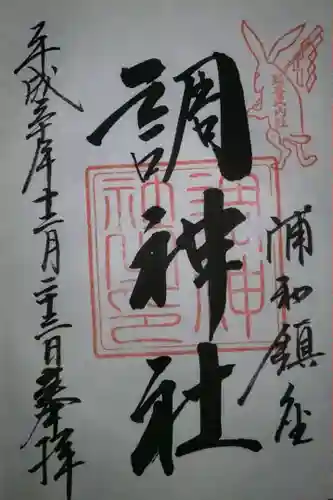 浦和鎮座
調神社
平成三十年十二月二十三日奉拝
調神社印